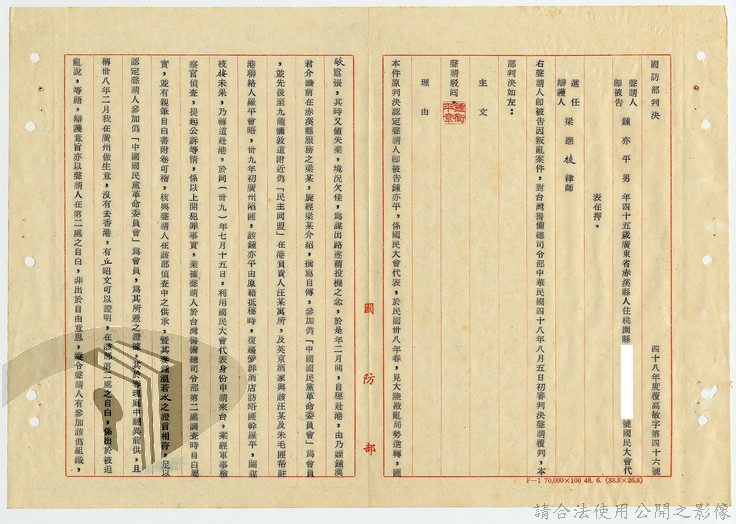 國防部判決
四十八年度覆高敏字第四十六號
聲請人
即被告
鍾亦平 男 年四十五歲廣東省赤溪縣人住桃園縣
號國民大會代
表在押。
選任
辯護人
梁繼 律師
右聲請人即被告因叛亂案件，對台灣警備總司令部中華民國四十八年八月五日初審判決聲請覆判，本
部判決如左：
主文
聲請駁回。
理由
本件原判決認定聲請人即被告鍾亦平，係國民大會代表，於民國卅八年春，見大陸叛亂局勢逆轉，匪
國防部
燄囂張，其時又值失業，境況欠佳，為謀出路遂萌投機之念，於是年二月間，自穗赴港，由乃嬌鍾漢
君介識前在赤溪縣服務之梁某，旋經梁某介紹，撰寫自傳，參加偽「中國國民黨革命委員會」為會員
，並先後至九龍彌敦道附近偽「民主同盟」在港負責人汪某寓所，及英京酒家與該汪某及朱毛匪幫駐
港聯絡人羅平會晤，卅九年初廣州陷匪，該鍾亦平由原籍抵穗時，復趨愛群酒店訪晤匪幹羅平，圖謀
枝接未果，乃轉道赴港，於同（卅九）年七月十五日，利用國民大會代表身份申請來台，案經軍事檢
察官偵查，提起公訴等情，係以上開犯罪事實，業據聲請人於台灣警備總司令部第二處調查時自白屬
實，並有親筆自白書附卷可稽，核與聲請人在該部偵查中之供承，暨其妻鍾溫若水之證言相符，足以
認定聲請人參加偽「中國國民黨革命委員會」為會員，為其所憑之證據，其於審理庭中翻異前供，且
稱卅八年二月我在廣州做生意，沒有去香港，有丘昭文可以證明，在該部第二處之自白，係出於被迫
亂說，等語，辯護意旨亦以聲請人在第二處之自白，非出於自由意思，縱令聲請人有參加該偽組織，
F—1 70,000×100 48.6.(38.8×26.8)
請合法使用公開之影像